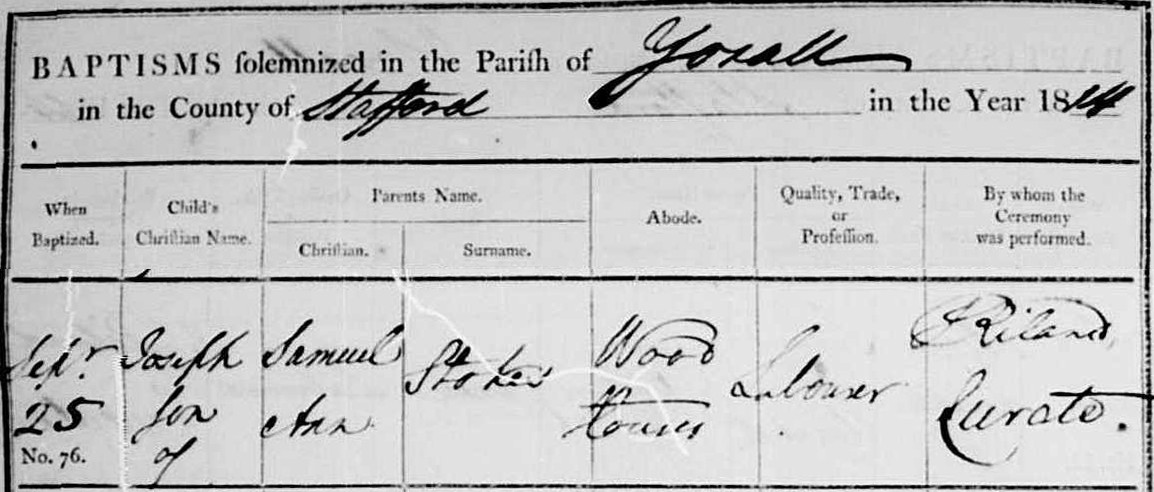 BAPTISMS ſolemnized in the Pariſh of Yoxall
in the County of Stafford in the Year 1814
When
Baptized.
Child's
Chriſtian Name.
Parents Name.
Chriſtian.
Surname.
Abode.
Quality, Trade,
or
Profeſſion.
By whom the
Ceremony
was performed.
Sepr.
25
No. 76.
Joseph
son
of
Samuel
Ann
Stokes
Wood
Houses
Labourer
Riland,
Curate.